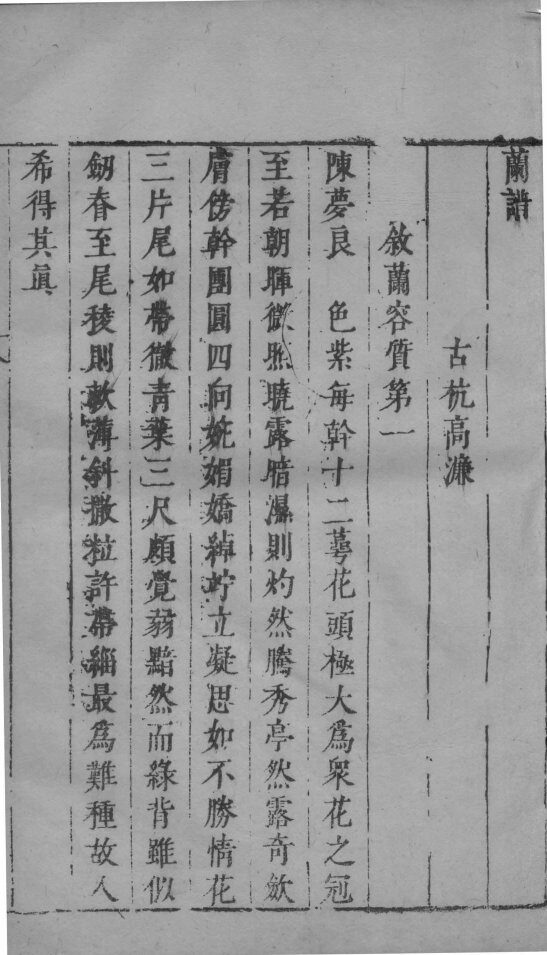 蘭譜
古杭高濂
敘蘭容質第一
陳夢良　色紫每幹十二萼花頭極大爲衆花之冠
至若朝暉微照曉露暗濕則灼然騰秀亭然露奇歛
膚傍幹團圓四向婉媚嬌綽竚立凝思如不勝情花
三片尾如帶微青葉三尺頗覺弱黯然而綠背雖似
劒脊至尾稜則軟薄斜撒粒許帶緇最爲難種故人
希得其眞